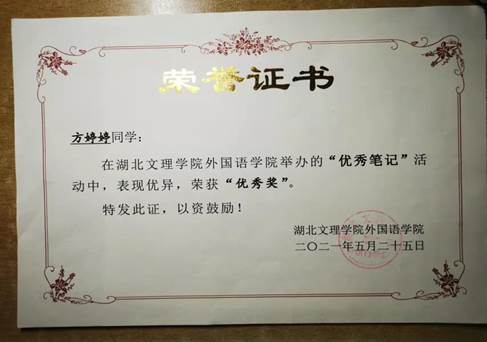 荣誉证书
方婷婷同学：
在湖北文理学院外国语学院举办的“优秀笔记”活
动中，表现优异，荣获“优秀奖”。
特发此证，以资鼓励！
湖北文理学院外国语学院
二〇二一年五月二十五日